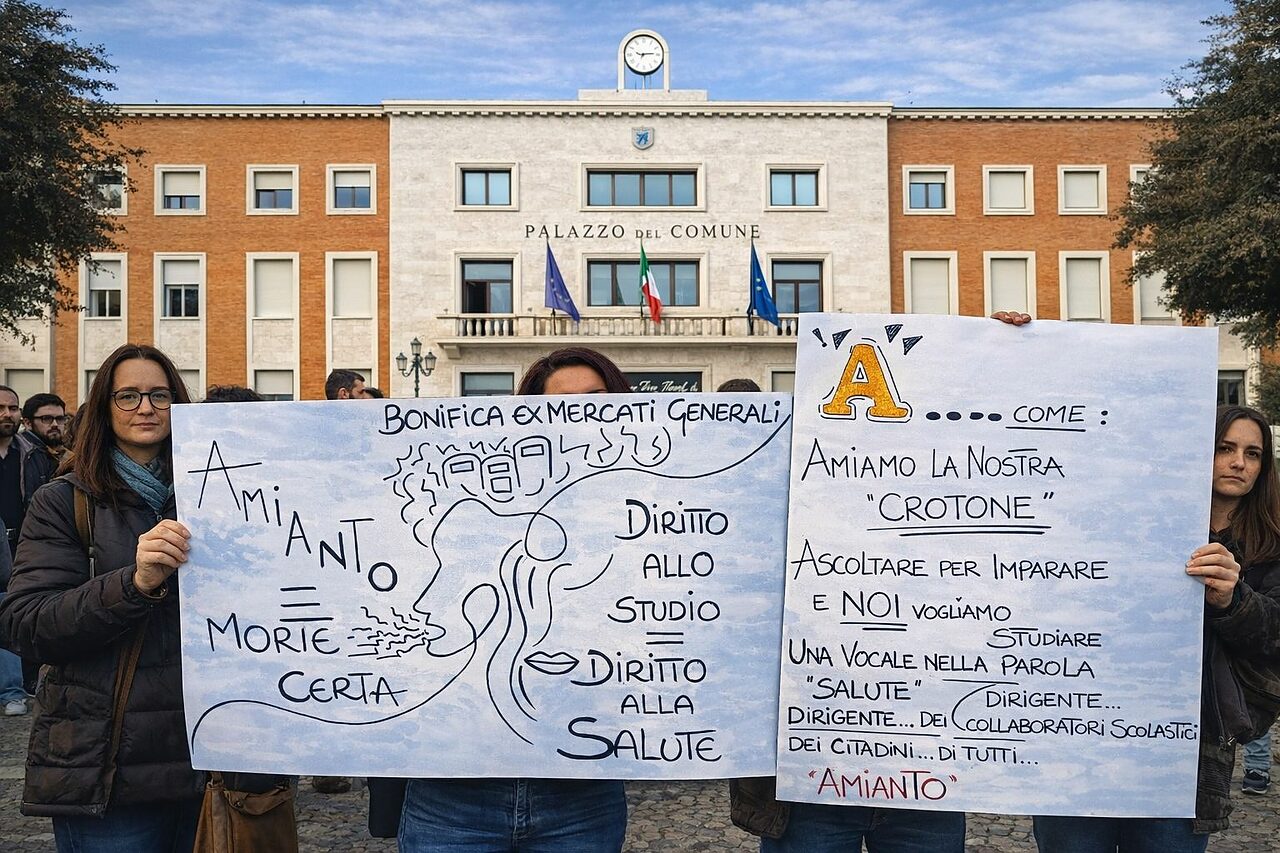 PALAZZO DEL COMUNE
BONIFICA EX MERCATI GENERALI
AMIANTO
=
MORTE
CERTA
DIRITTO
ALLO
STUDIO
=
DIRITTO
ALLA
SALUTE
A .... COME :
AMIAMO LA NOSTRA
"CROTONE"
ASCOLTARE PER IMPARARE
E NOI VOGLIAMO
STUDIARE
UNA VOCALE NELLA PAROLA
"SALUTE"
DIRIGENTE...
DIRIGENTE... DEI COLLABORATORI SCOLASTICI
DEI CITADINI... DI TUTTI...
"AMIANTO"